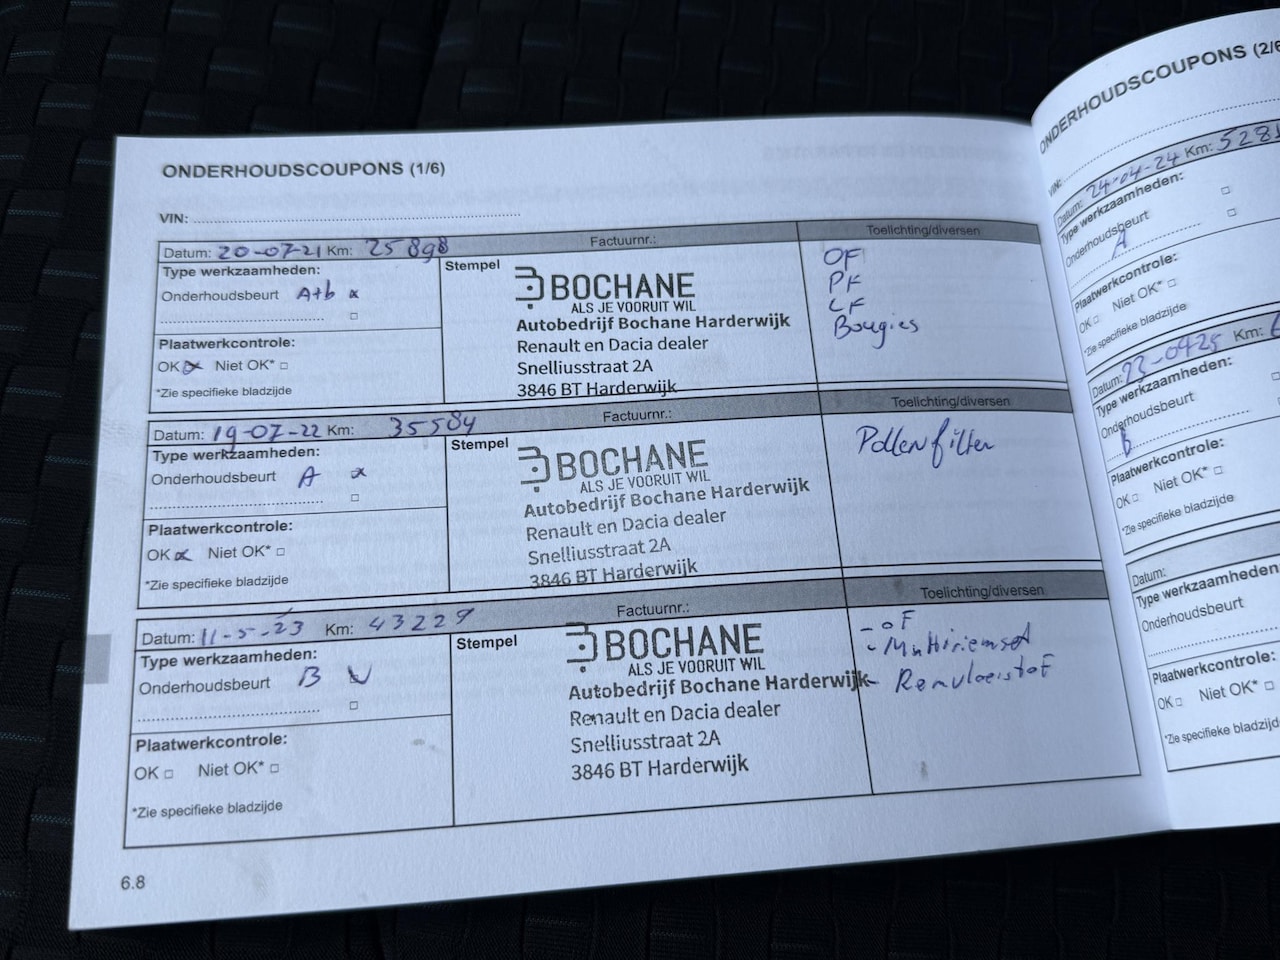 ONDERHOUDSCOUPONS (1/6)
VIN:
Datum: 20-07-21 Km: 25898 Factuurnr.: Toelichting/diversen
Type werkzaamheden:
Onderhoudsbeurt A+b x
Plaatwerkcontrole:
OK x Niet OK* □
*Zie specifieke bladzijde
Stempel
BOCHANE
ALS JE VOORUIT WIL
Autobedrijf Bochane Harderwijk
Renault en Dacia dealer
Snelliusstraat 2A
3846 BT Harderwijk
OF
PF
LF
Bougies
Datum: 19-07-22 Km: 35584 Factuurnr.: Toelichting/diversen
Type werkzaamheden:
Onderhoudsbeurt A x
Plaatwerkcontrole:
OK x Niet OK* □
*Zie specifieke bladzijde
Stempel
BOCHANE
ALS JE VOORUIT WIL
Autobedrijf Bochane Harderwijk
Renault en Dacia dealer
Snelliusstraat 2A
3846 BT Harderwijk
Pollenfilter
Datum: 11-5-23 Km: 43229 Factuurnr.: Toelichting/diversen
Type werkzaamheden:
Onderhoudsbeurt B
Plaatwerkcontrole:
OK □ Niet OK* □
*Zie specifieke bladzijde
Stempel
BOCHANE
ALS JE VOORUIT WIL
Autobedrijf Bochane Harderwijk
Renault en Dacia dealer
Snelliusstraat 2A
3846 BT Harderwijk
- OF
- Multiriemset
- Remvloeistof
6.8
ONDERHOUDSCOUPONS (2/6
VIN:
Datum: 24-04-24 Km: 528
Type werkzaamheden:
Onderhoudsbeurt
A
Plaatwerkcontrole:
OK □ Niet OK* □
*Zie specifieke bladzijde
Datum: 23-0425 Km:
Type werkzaamheden:
Onderhoudsbeurt
b
Plaatwerkcontrole:
OK □ Niet OK* □
*Zie specifieke bladzijde
Datum:
Type werkzaamheden
Onderhoudsbeurt
Plaatwerkcontrole:
OK □ Niet OK* □
*Zie specifieke bladzijde